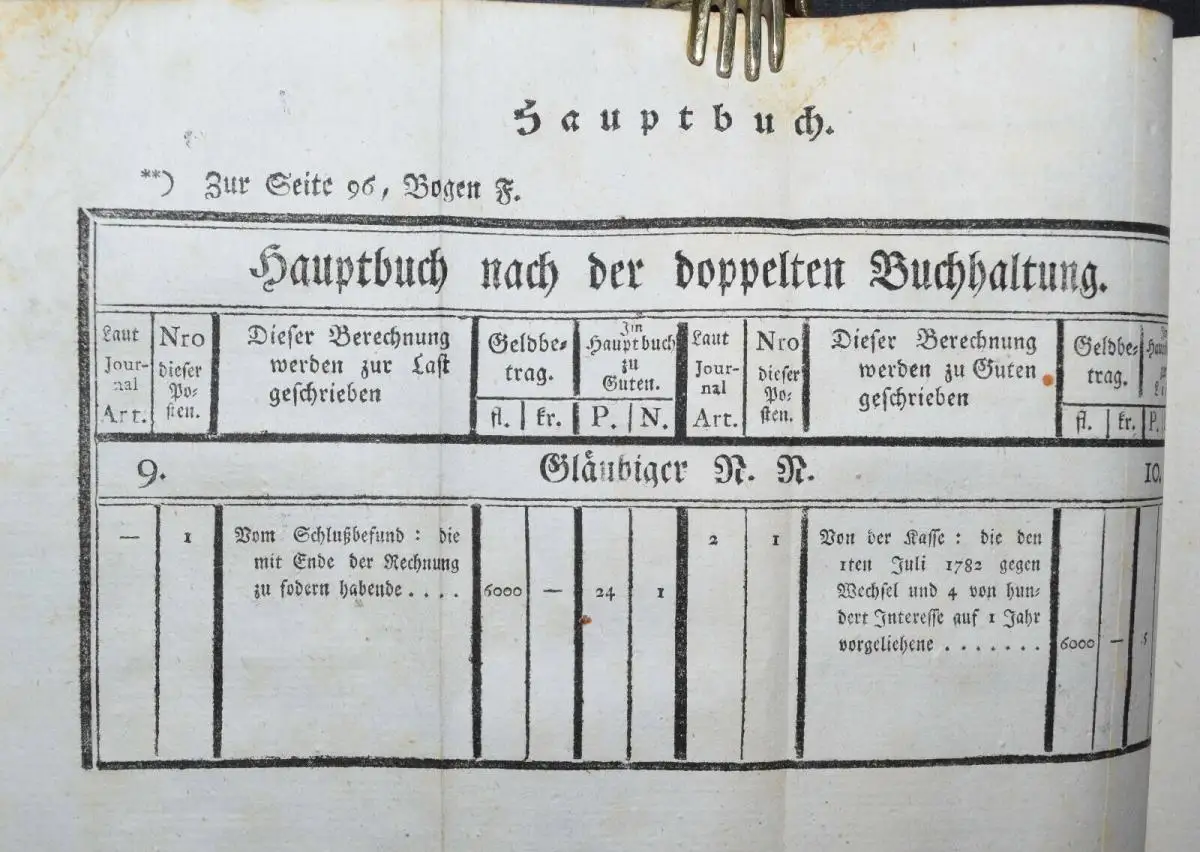 Hauptbuch.
**) Zur Seite 96, Bogen F.
Hauptbuch nach der doppelten Buchhaltung.
Laut Journal Art.
Nro dieser Posten.
Dieser Berechnung
werden zur Last
geschrieben
Geldbe-
trag.
fl. kr.
Im
Hauptbuch
zu
Guten.
P. N.
Laut
Jour-
nal
Art.
Nro
dieser
Po-
sten.
Dieser Berechnung
werden zu Guten
geschrieben
Geldbe-
trag.
fl. kr.
P.
9. Gläubiger N. N. 10.
— 1 Vom Schlußbefund : die
mit Ende der Rechnung
zu fodern habende . . . . 6000 — 24 1
2 1 Von der Kasse : die den
1ten Juli 1782 gegen
Wechsel und 4 von hun-
dert Interesse auf 1 Jahr
vorgeliehene . . . . . . . 6000 — 5